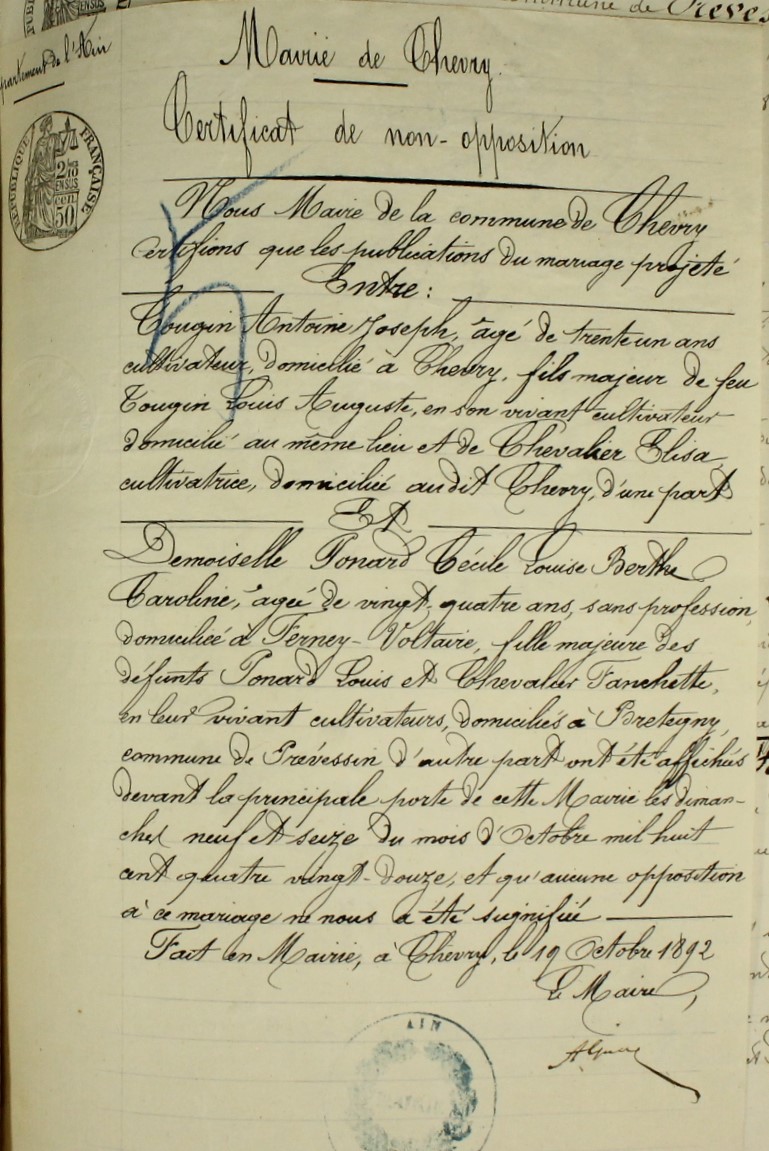 commune de Préves
partement de l'Ain
Mairie de Chevry
RÉPUBLIQUE FRANÇAISE
2/10 EN SUS
50 cen
Certificat de non-opposition
Nous Maire de la commune de Chevry
certifions que les publications du mariage projeté
Entre :
Tougin Antoine Joseph, âgé de trente un ans
cultivateur, domicilié à Chevry, fils majeur de feu
Tougin Louis Auguste, en son vivant cultivateur
domicilié au même lieu et de Chevalier Elisa,
cultivatrice, domiciliée audit Chevry, d'une part
Et
Demoiselle Ponard Cécile Louise Berthe
Caroline, âgée de vingt-quatre ans, sans profession,
domiciliée à Ferney-Voltaire, fille majeure des
défunts Ponard Louis et Chevalier Fanchette,
en leur vivant cultivateurs, domiciliés à Bretegny,
commune de Prévessin d'autre part ont été affichés
devant la principale porte de cette Mairie les diman-
ches neuf et seize du mois d'Octobre mil huit
cent quatre vingt-douze, et qu'aucune opposition
à ce mariage ne nous a été signifiée
Fait en Mairie, à Chevry, le 19 Octobre 1892
Le Maire,
AIN